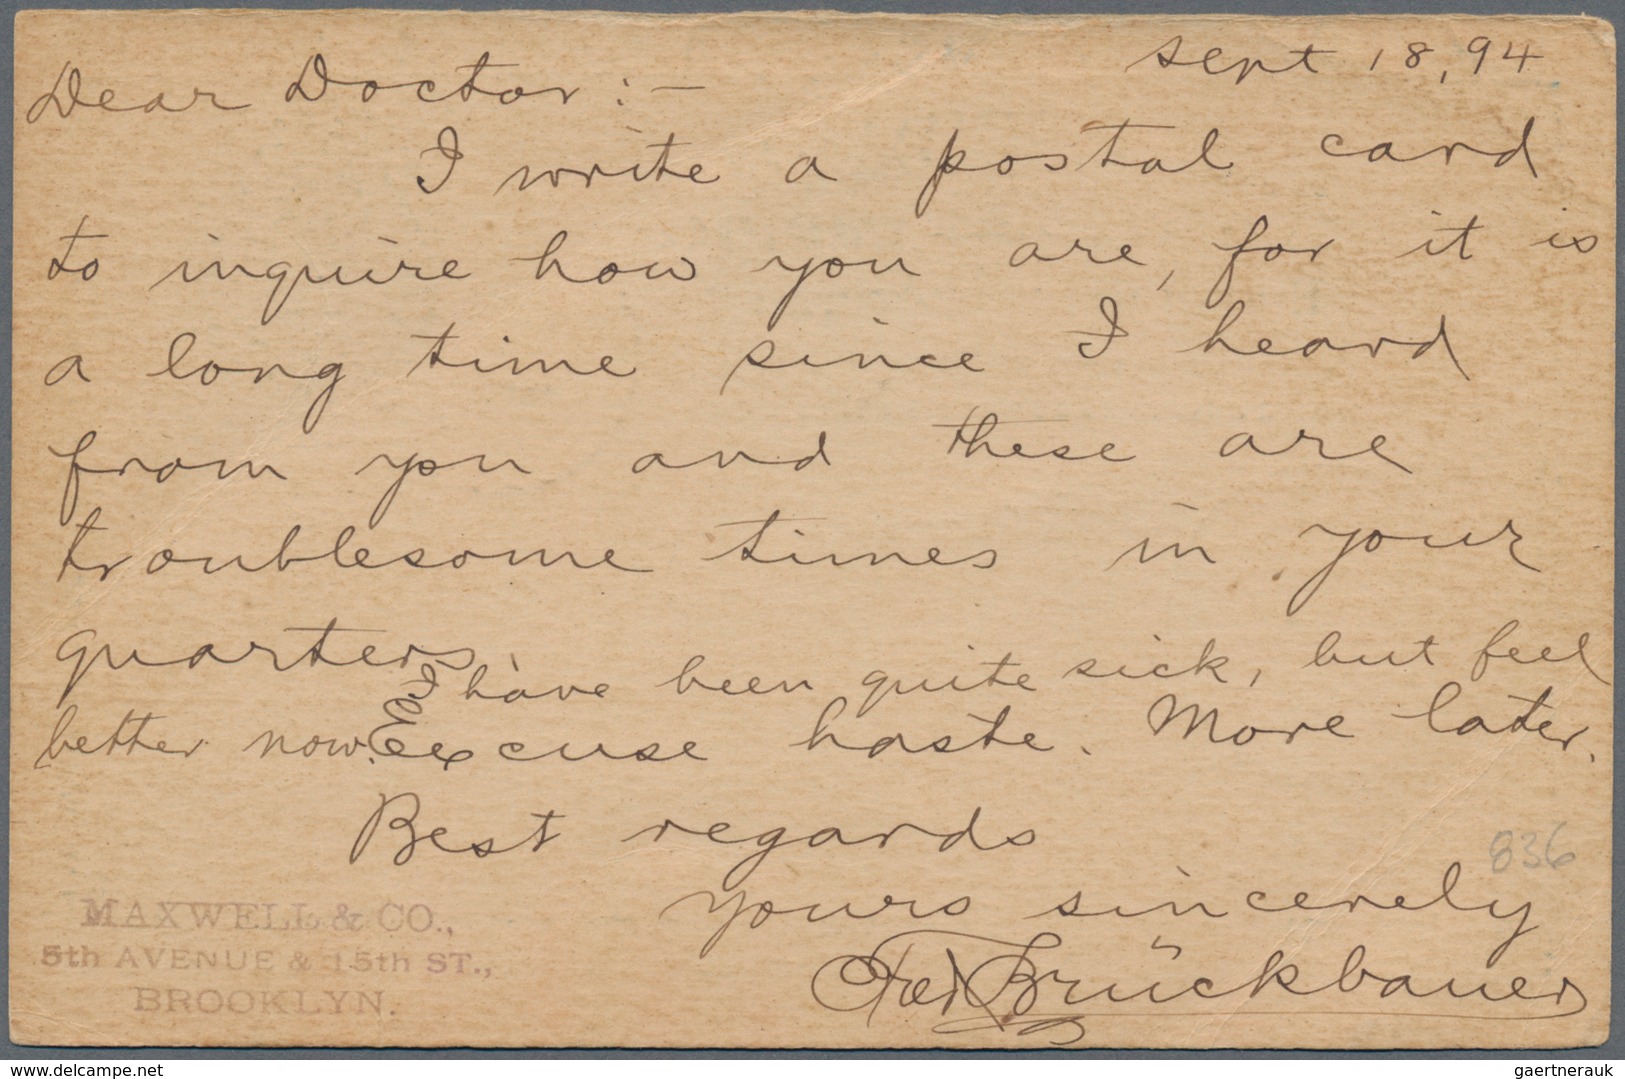 Sept 18, 94
Dear Doctor :—
I write a postal card
to inquire how you are, for it is
a long time since I heard
from you and these are
troublesome times in your
quarters.
I have been quite sick, but feel
better now. Excuse haste. More later.
Best regards
836
yours sincerely
Fred Brückbauer
MAXWELL & CO.,
5th AVENUE & 15th ST.,
BROOKLYN.
www.delcampe.net
gaertnerauk